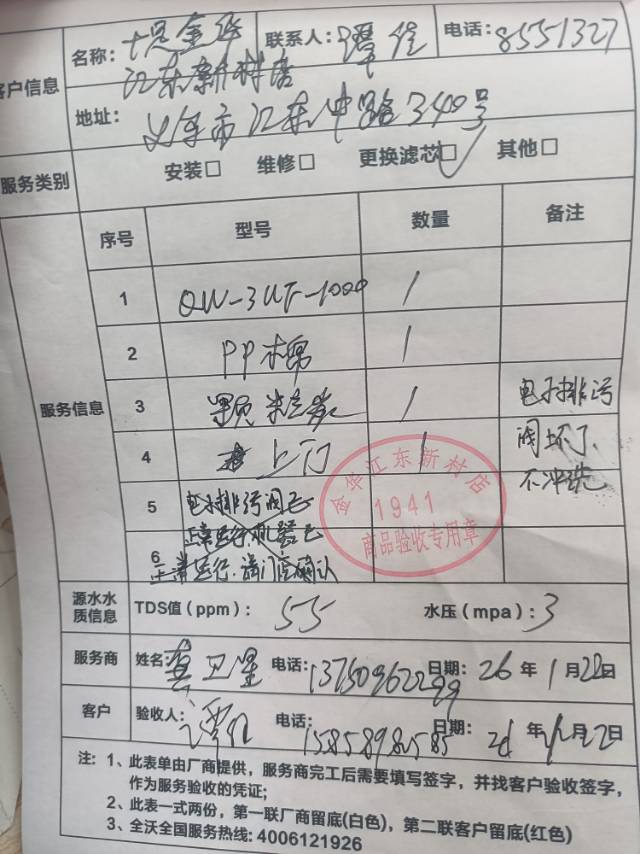 客户信息 名称: 金华 联系人: 谭 电话: 85551327
江东新村店
地址: 义乌市江东中路340号
服务类别 安装□ 维修□ 更换滤芯☑ 其他□
服务信息 序号 型号 数量 备注
1 QW-3UF-1000 1
2 PP棉 1
3 颗粒炭 1 电子排污
4 上门 1 阀坏了
不冲洗
5 电子排污阀已
正常运行 机器已
6 正常运行.请门店确认
金华江东新村店
1941
商品验收专用章
源水水质信息 TDS值(ppm): 55 水压(mpa): 3
服务商 姓名: 卫星 电话: 13750962299 日期: 26年1月22日
客户 验收人: 谭 电话: 15858981585 日期: 年1月22日
注: 1、此表单由厂商提供，服务商完工后需要填写签字，并找客户验收签字，
作为服务验收的凭证;
2、此表一式两份，第一联厂商留底(白色)，第二联客户留底(红色)
3、全沃全国服务热线: 4006121926